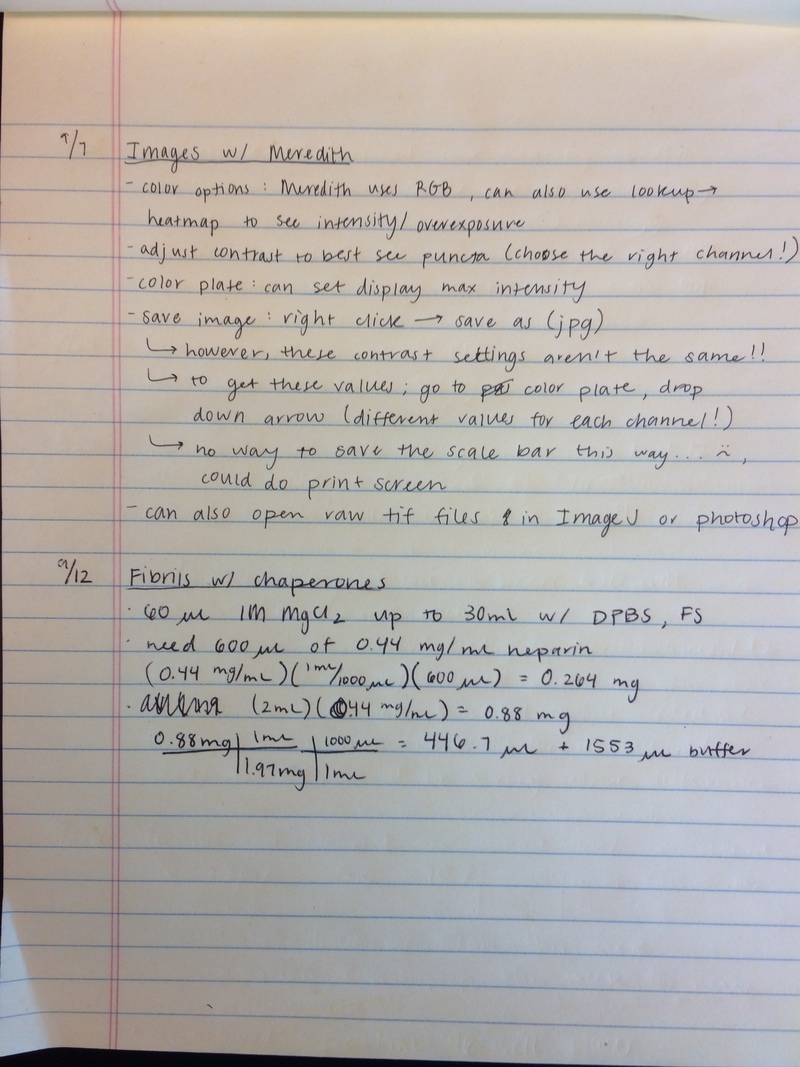 9/7 Images w/ Meredith
- color options : Meredith uses RGB , can also use lookup →
heatmap to see intensity/ overexposure
- adjust contrast to best see puncta (choose the right channel!)
- color plate : can set display max intensity
- save image : right click → save as (jpg)
↳ however, these contrast settings aren't the same!!
↳ to get these values ; go to color plate, drop
down arrow (different values for each channel!)
↳ no way to save the scale bar this way... ,
could do print screen
- can also open raw tif files in ImageJ or photoshop
9/12 Fibrils w/ chaperones
· 60 μL 1M MgCl2 up to 30ml w/ DPBS, FS
· need 600 μL of 0.44 mg/mL heparin
(0.44 mg/mL)(1mL/1000 μL)(600 μL) = 0.264 mg
· (2mL)(0.44 mg/mL) = 0.88 mg
0.88mg | 1mL | 1000 μL = 446.7 μL + 1553 μL buffer
| 1.97mg | 1mL